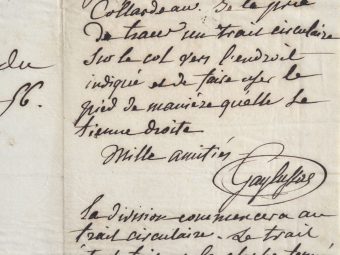 Collardeau. Je le prie
de tracer un trait circulaire
sur le col vers l'endroit
indiqué et de faire user le
pied de manière quelle se
tienne droite
Mille amitiés
Gay Lussac
du
56.
La division commencera au
trait circulaire. Le trait